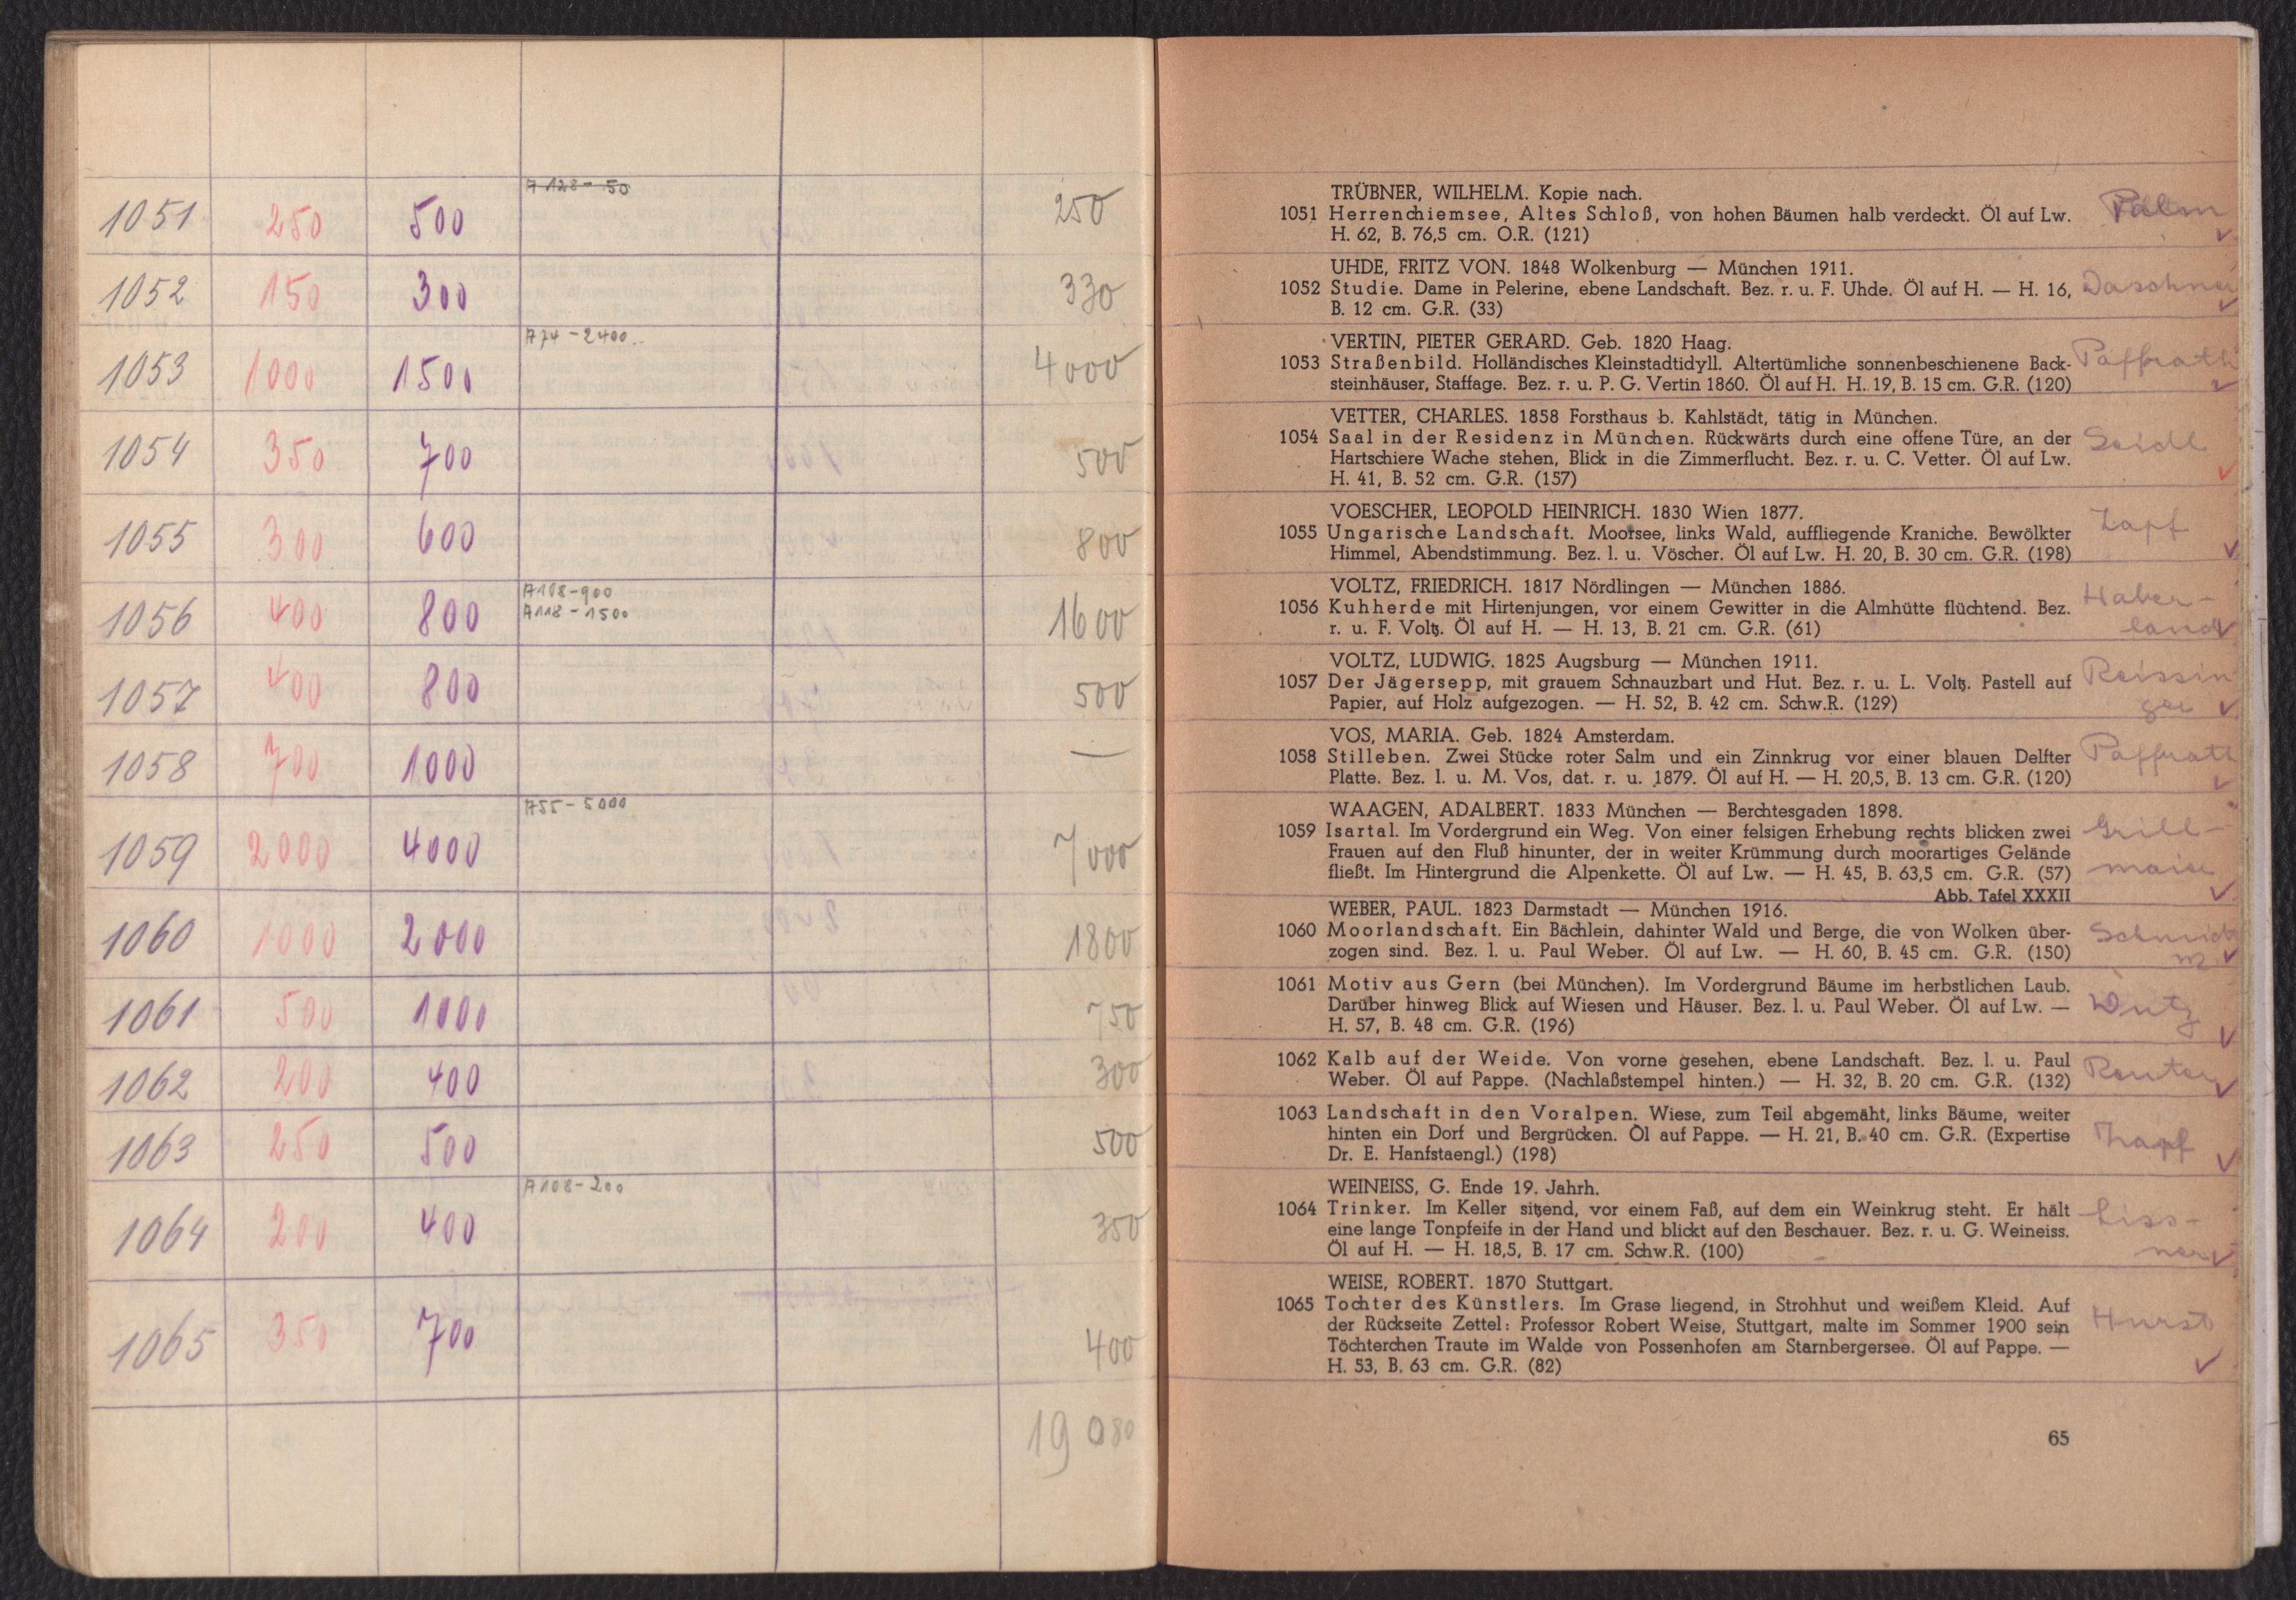 A 128 - 50
1051 250 500 250
1052 150 300 330
A 74 - 2400
1053 1000 1500 4000
1054 350 700 500
1055 300 600 800
A 108 - 900
1056 400 800 A 118 - 1500 1600
1057 400 800 500
1058 700 1000 —
A 55 - 5000
1059 2000 4000 7000
1060 1000 2000 1800
1061 500 1000 750
1062 200 400 300
1063 250 500 500
A 108 - 200
1064 200 400 350
1065 350 700 400
19 080
TRÜBNER, WILHELM. Kopie nach.
1051 Herrenchiemsee, Altes Schloß, von hohen Bäumen halb verdeckt. Öl auf Lw. Palm
H. 62, B. 76,5 cm. O.R. (121)
UHDE, FRITZ VON. 1848 Wolkenburg — München 1911.
1052 Studie. Dame in Pelerine, ebene Landschaft. Bez. r. u. F. Uhde. Öl auf H. — H. 16, Daschner
B. 12 cm. G.R. (33)
VERTIN, PIETER GERARD. Geb. 1820 Haag.
1053 Straßenbild. Holländisches Kleinstadtidyll. Altertümliche sonnenbeschienene Back- Paffrath
steinhäuser, Staffage. Bez. r. u. P. G. Vertin 1860. Öl auf H. H. 19, B. 15 cm. G.R. (120)
VETTER, CHARLES. 1858 Forsthaus b. Kahlstädt, tätig in München.
1054 Saal in der Residenz in München. Rückwärts durch eine offene Türe, an der Seidl
Hartschiere Wache stehen, Blick in die Zimmerflucht. Bez. r. u. C. Vetter. Öl auf Lw.
H. 41, B. 52 cm. G.R. (157)
VOESCHER, LEOPOLD HEINRICH. 1830 Wien 1877.
1055 Ungarische Landschaft. Moorsee, links Wald, auffliegende Kraniche. Bewölkter Zapf
Himmel, Abendstimmung. Bez. l. u. Vöscher. Öl auf Lw. H. 20, B. 30 cm. G.R. (198)
VOLTZ, FRIEDRICH. 1817 Nördlingen — München 1886.
1056 Kuhherde mit Hirtenjungen, vor einem Gewitter in die Almhütte flüchtend. Bez. Haber-
r. u. F. Voltz. Öl auf H. — H. 13, B. 21 cm. G.R. (61) land
VOLTZ, LUDWIG. 1825 Augsburg — München 1911.
1057 Der Jägersepp, mit grauem Schnauzbart und Hut. Bez. r. u. L. Voltz. Pastell auf Reissin
Papier, auf Holz aufgezogen. — H. 52, B. 42 cm. Schw.R. (129) ger
VOS, MARIA. Geb. 1824 Amsterdam.
1058 Stilleben. Zwei Stücke roter Salm und ein Zinnkrug vor einer blauen Delfter Paffrath
Platte. Bez. l. u. M. Vos, dat. r. u. 1879. Öl auf H. — H. 20,5, B. 13 cm. G.R. (120)
WAAGEN, ADALBERT. 1833 München — Berchtesgaden 1898.
1059 Isartal. Im Vordergrund ein Weg. Von einer felsigen Erhebung rechts blicken zwei Grill-
Frauen auf den Fluß hinunter, der in weiter Krümmung durch moorartiges Gelände
fließt. Im Hintergrund die Alpenkette. Öl auf Lw. — H. 45, B. 63,5 cm. G.R. (57) maier
Abb. Tafel XXXII
WEBER, PAUL. 1823 Darmstadt — München 1916.
1060 Moorlandschaft. Ein Bächlein, dahinter Wald und Berge, die von Wolken über-
zogen sind. Bez. l. u. Paul Weber. Öl auf Lw. — H. 60, B. 45 cm. G.R. (150)
1061 Motiv aus Gern (bei München). Im Vordergrund Bäume im herbstlichen Laub.
Darüber hinweg Blick auf Wiesen und Häuser. Bez. l. u. Paul Weber. Öl auf Lw. — Wutz
H. 57, B. 48 cm. G.R. (196)
1062 Kalb auf der Weide. Von vorne gesehen, ebene Landschaft. Bez. l. u. Paul
Weber. Öl auf Pappe. (Nachlaßstempel hinten.) — H. 32, B. 20 cm. G.R. (132)
1063 Landschaft in den Voralpen. Wiese, zum Teil abgemäht, links Bäume, weiter
hinten ein Dorf und Bergrücken. Öl auf Pappe. — H. 21, B. 40 cm. G.R. (Expertise Zapf
Dr. E. Hanfstaengl.) (198)
WEINEISS, G. Ende 19. Jahrh.
1064 Trinker. Im Keller sitzend, vor einem Faß, auf dem ein Weinkrug steht. Er hält Liss-
eine lange Tonpfeife in der Hand und blickt auf den Beschauer. Bez. r. u. G. Weineiss.
Öl auf H. — H. 18,5, B. 17 cm. Schw.R. (100) ner
WEISE, ROBERT. 1870 Stuttgart.
1065 Tochter des Künstlers. Im Grase liegend, in Strohhut und weißem Kleid. Auf
der Rückseite Zettel: Professor Robert Weise, Stuttgart, malte im Sommer 1900 sein Hurst
Töchterchen Traute im Walde von Possenhofen am Starnbergersee. Öl auf Pappe. —
H. 53, B. 63 cm. G.R. (82)
65